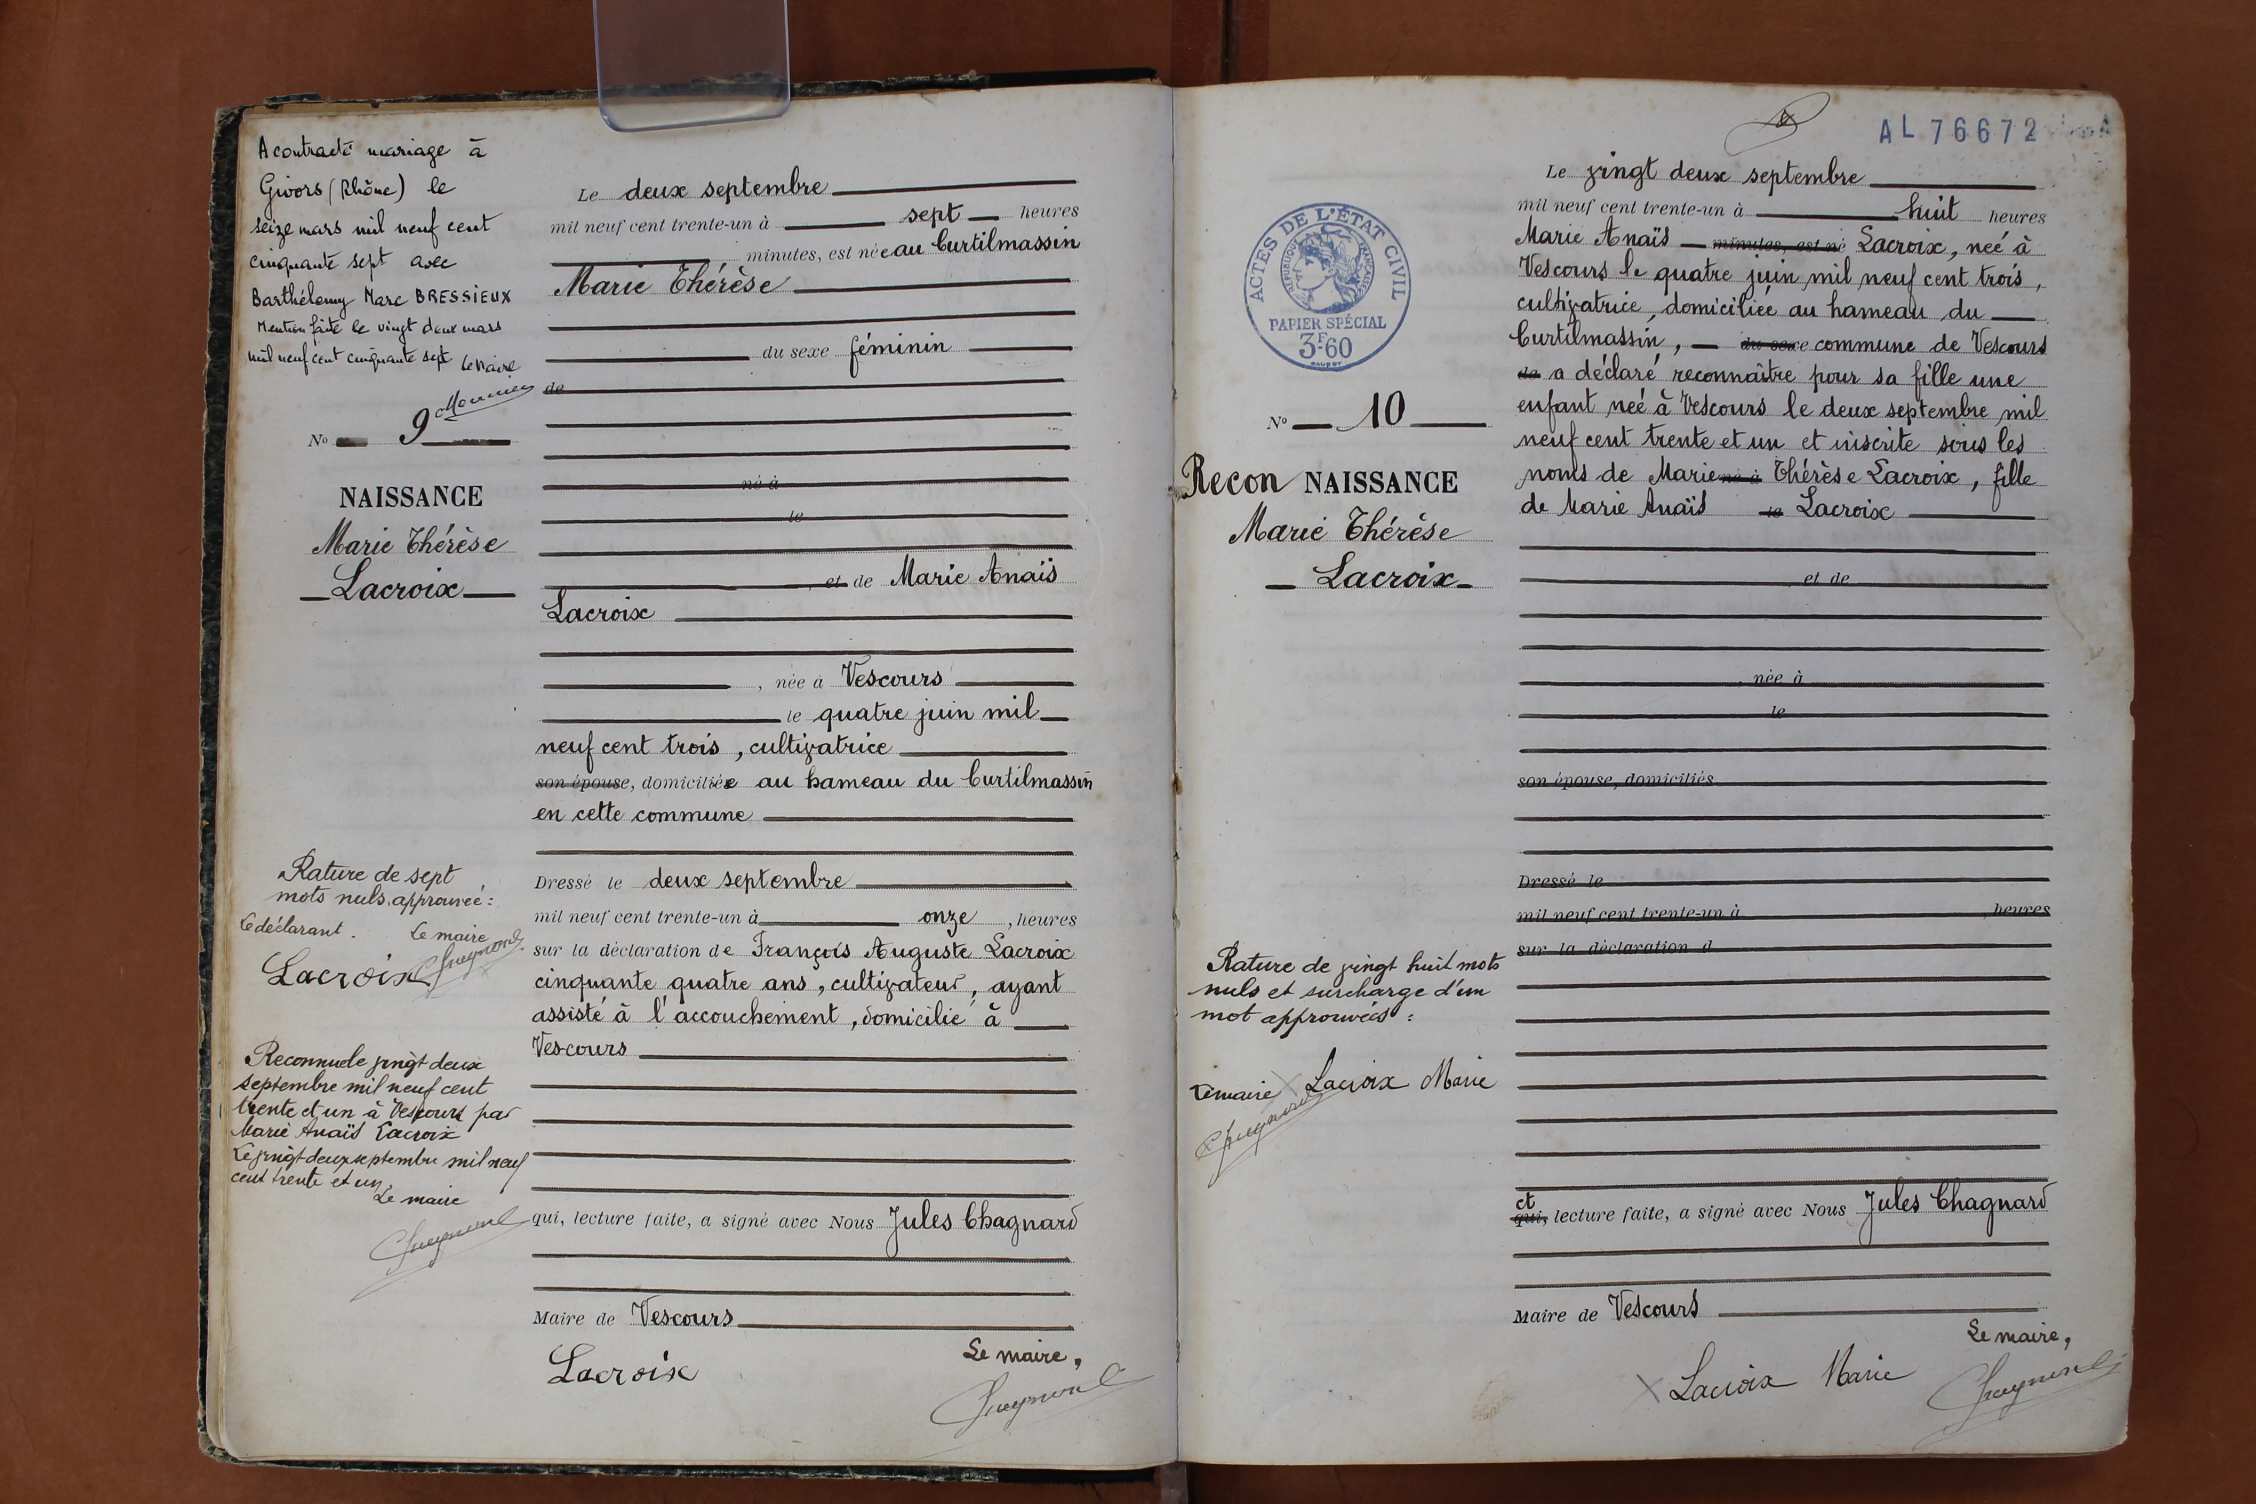 A contracté mariage à
Givors (Rhône) le
seize mars mil neuf cent
cinquante sept avec
Barthélemy Marc BRESSIEUX
Mention faite le vingt deux mars
mil neuf cent cinquante sept Le Maire
No 9
NAISSANCE
Marie Thérèse
Lacroix
Rature de sept
mots nuls approuvée :
Le déclarant. Le maire
Lacroix
Reconnue le vingt deux
septembre mil neuf cent
trente et un à Vescours par
Marie Anaïs Lacroix
Le vingt deux septembre mil neuf
cent trente et un.
Le maire
Le deux septembre
mil neuf cent trente-un à sept heures
minutes, est née au Curtilmassin
Marie Thérèse
du sexe féminin
de
né à
le
et de Marie Anaïs
Lacroix
, née à Vescours
le quatre juin mil
neuf cent trois, cultivatrice
son épouse, domiciliée au hameau du Curtilmassin
en cette commune
Dressé le deux septembre
mil neuf cent trente-un à onze, heures
sur la déclaration de François Auguste Lacroix
cinquante quatre ans, cultivateur, ayant
assisté à l'accouchement, domicilié à
Vescours
qui, lecture faite, a signé avec Nous Jules Chagnard
Maire de Vescours
Le maire,
Lacroix
AL 76672
ACTES DE L'ÉTAT CIVIL
RÉPUBLIQUE FRANÇAISE
PAPIER SPÉCIAL
3F.60
No 10
Recon NAISSANCE
Marie Thérèse
Lacroix
Rature de vingt huit mots
nuls et surcharge d'un
mot approuvées :
Le maire Lacroix Marie
Le vingt deux septembre
mil neuf cent trente-un à huit heures
Marie Anaïs minutes, est né Lacroix, neé à
Vescours le quatre juin mil neuf cent trois,
cultivatrice, domiciliée au hameau du
Curtilmassin, du sexe commune de Vescours
de a déclaré reconnaître pour sa fille une
enfant neé à Vescours le deux septembre mil
neuf cent trente et un et inscrite sous les
noms de Marie né à Thérèse Lacroix, fille
de Marie Anaïs le Lacroix
et de
, née à
le
son épouse, domiciliés
Dressé le
mil neuf cent trente-un à , heures
sur la déclaration d
et
qui, lecture faite, a signé avec Nous Jules Chagnard
Maire de Vescours
Le maire,
Lacroix Marie